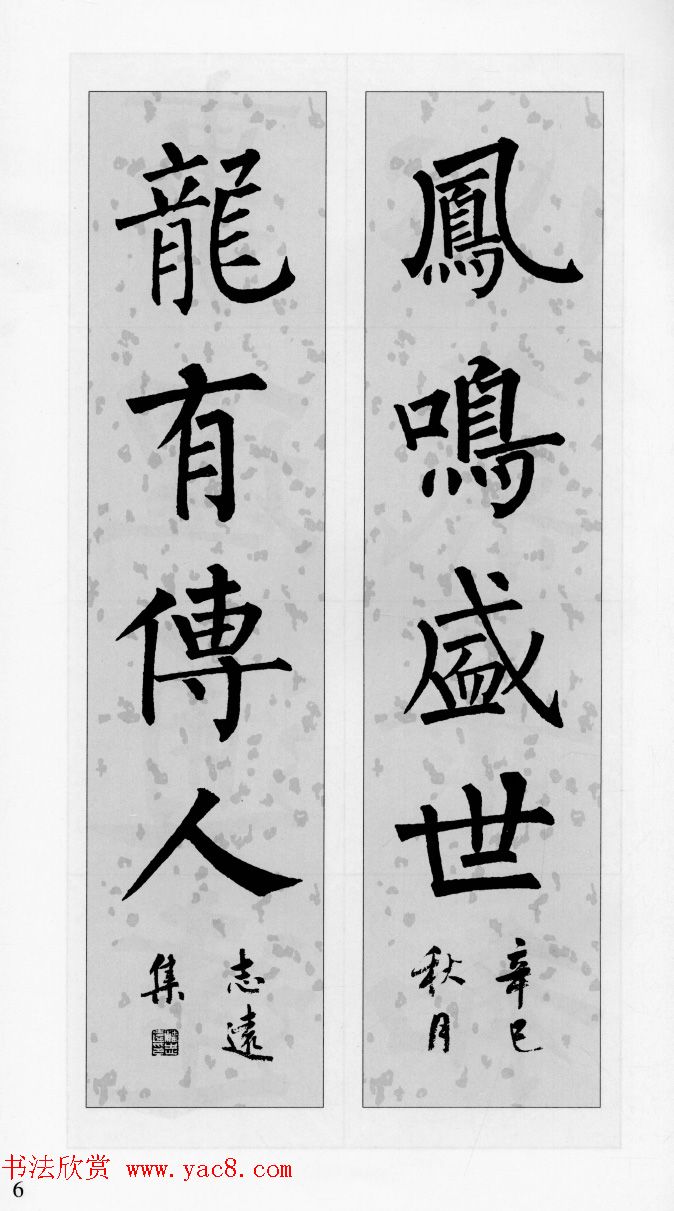 鳳鳴盛世
辛巳
秋月
龍有傳人
志遠
集
书法欣赏 www.yac8.com
6